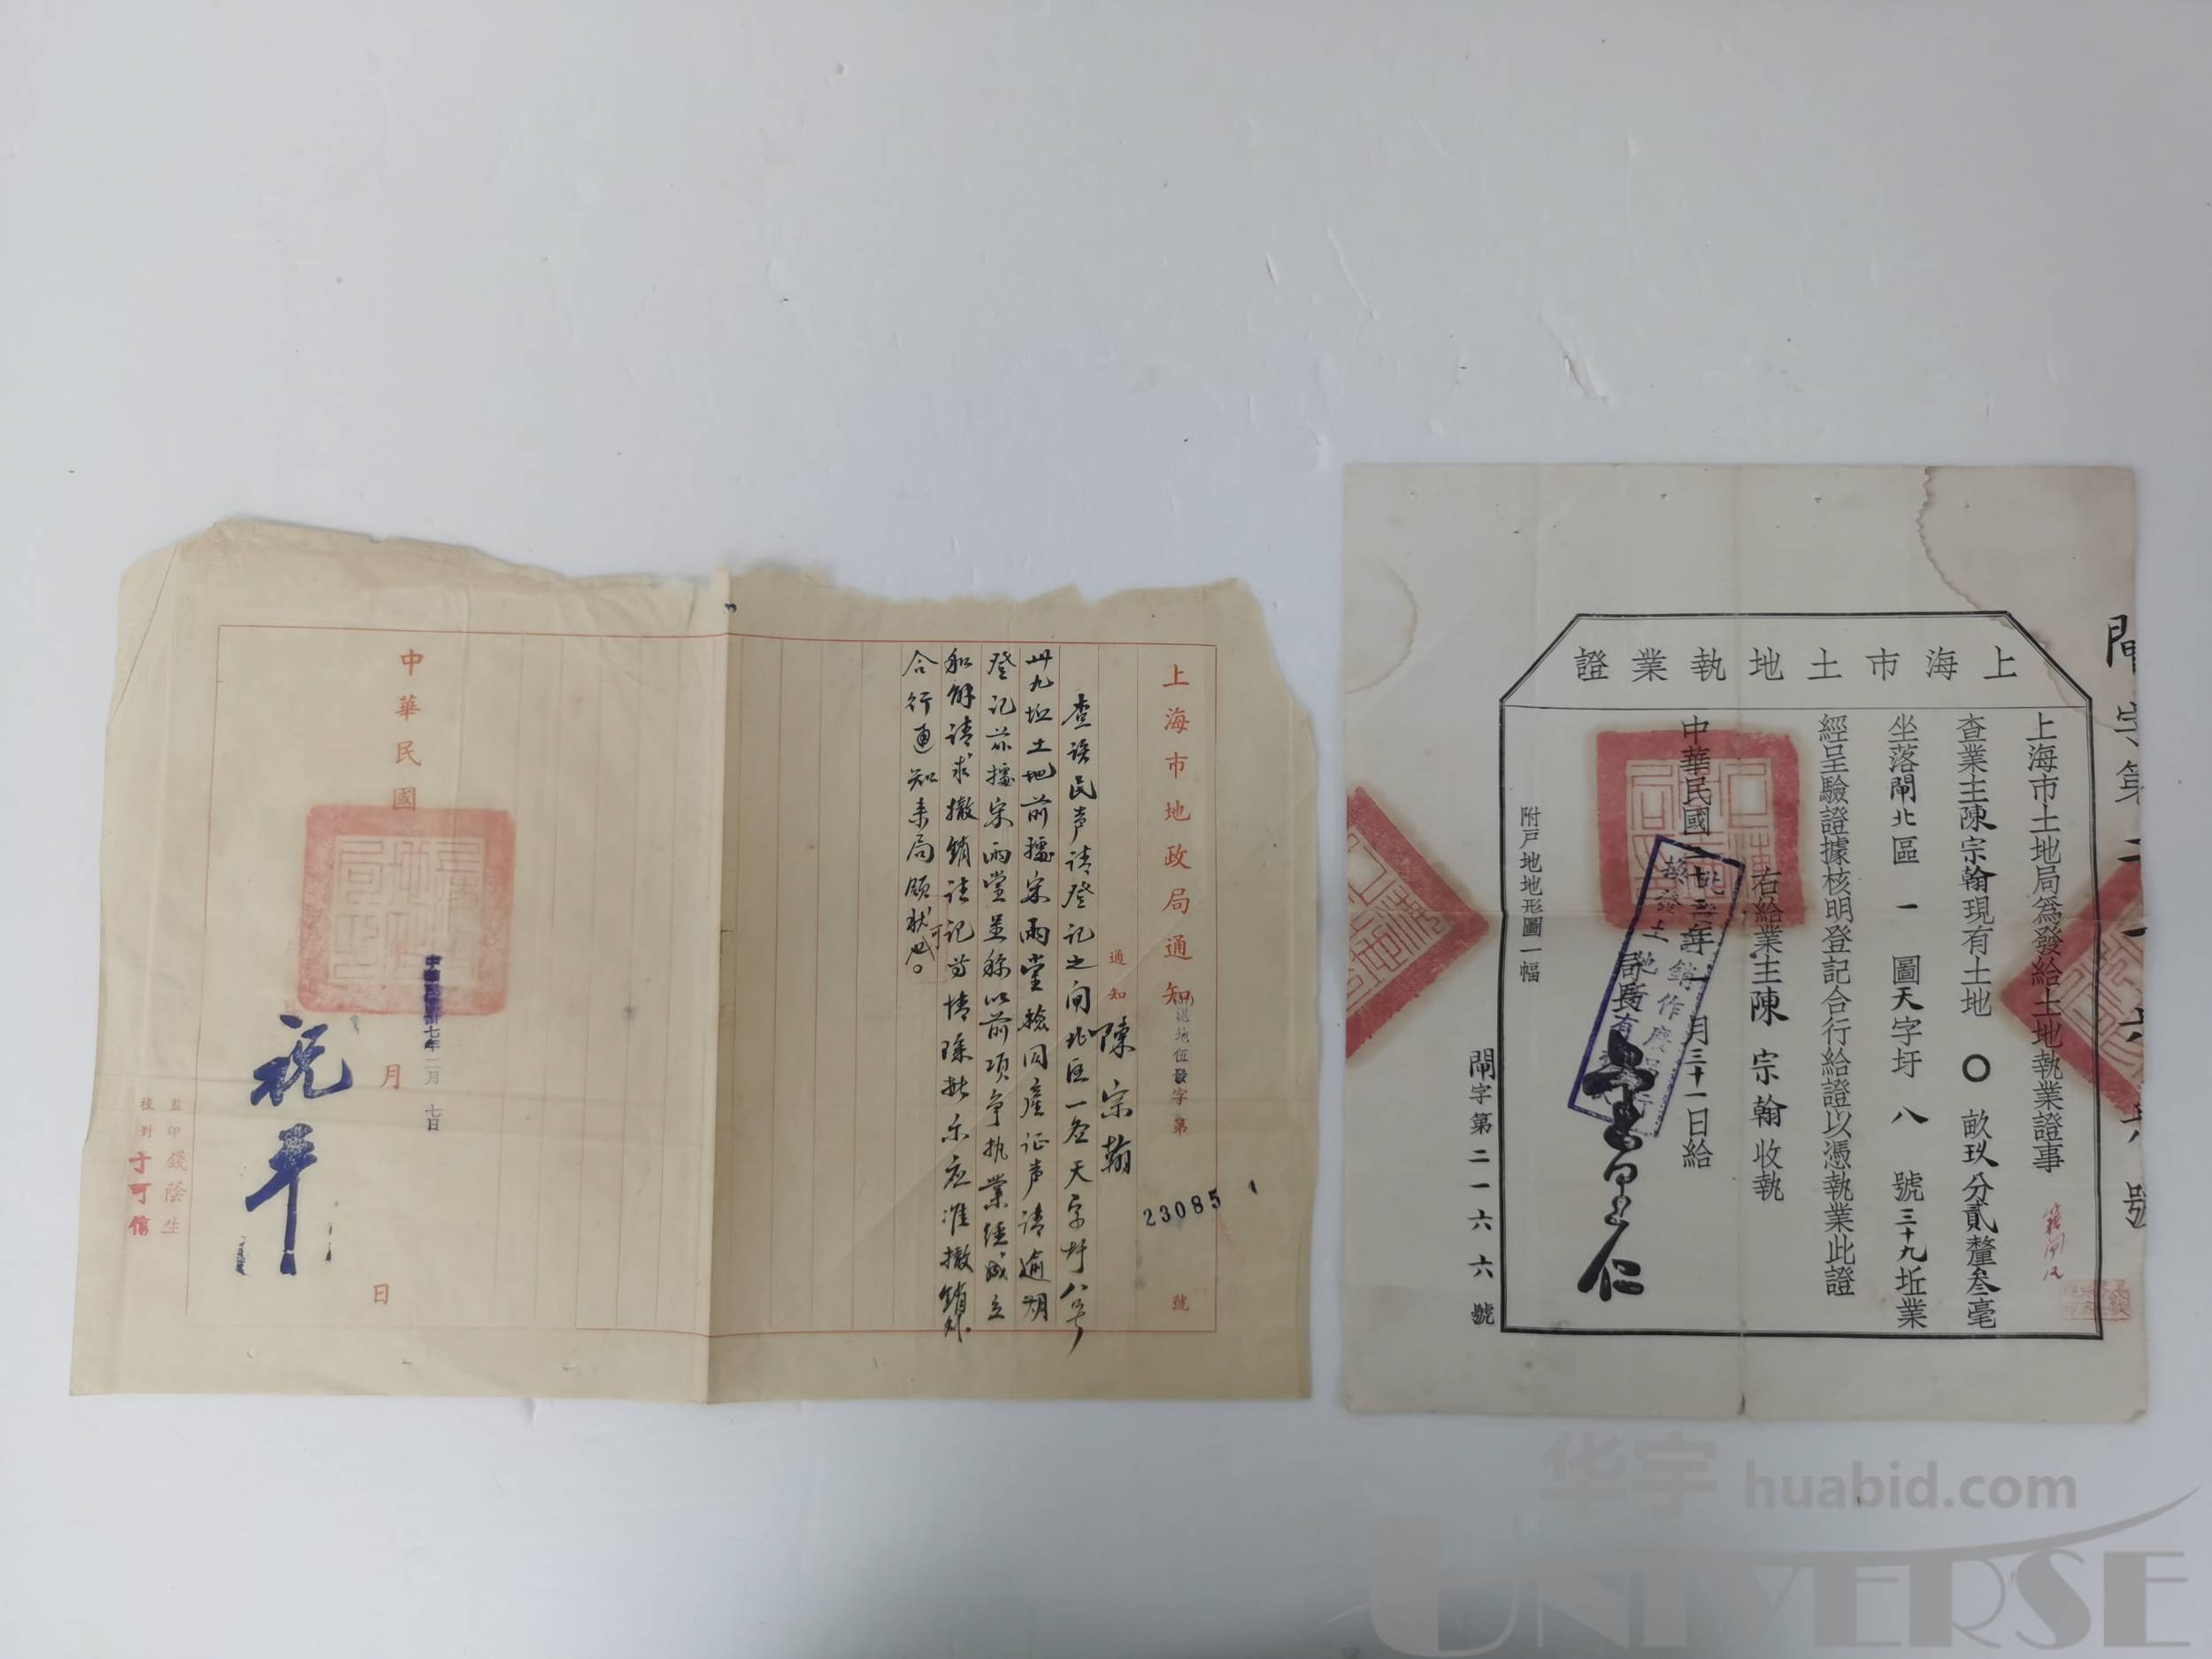 上海市土地執業證
上海市土地局為發給土地執業證事
查業主陳宗翰現有土地〇畝玖分貳釐叁毫
坐落閘北區一圖天字圩八號三十九坵業
經呈驗證據核明登記合行給證以憑執業此證
右給業主陳宗翰收執
中華民國
月三十一日給
局長
附戶地地形圖一幅
閘字第二一六六號
上海市地政局通知
字第
23085
號
通知
陳宗翰
查該民声請登記之閘北区一啚天字圩八号
卅九坵土地前據宋雨堂檢同產证声請逾期
登記茲據宋雨堂並称以前項争执業經成立
和解請求撤銷註記等情除批示应准撤銷外
合行通知来局領狀可也。
中華民國
中華民國卅七年二月七日
月
日
祝平
監印錢蔭生
校對于可信
华宇 huabid.com
UNIVERSE